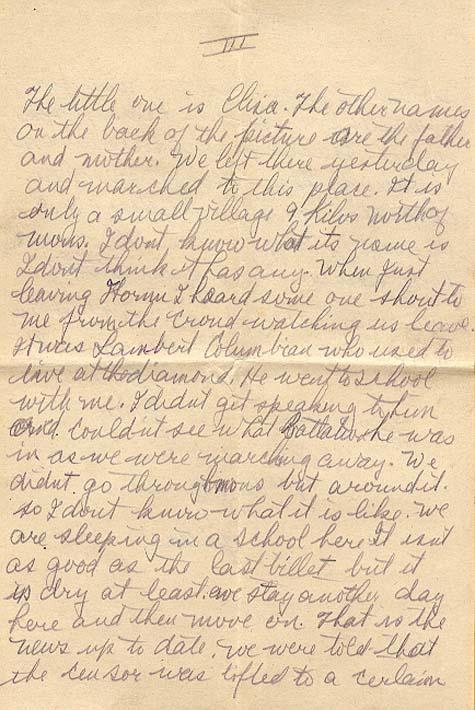 III
The little one is Elisa. The other names
on the back of the picture are the father
and mother. We left there yesterday
and marched to this place. It is
only a small village 9 Kilos north of
mons. I dont know what its name is
I dont think it has any. When just
leaving Hornu I heard some one shout to
me from the crowd watching us leave.
It was Lambert Columbian who used to
live at the diamond. He went to school
with me. I didnt get speaking to him
and couldnt see what Battalion he was
in as we were marching away. We
didnt go through mons but around it.
so I dont know what it is like. We
are sleeping in a school here It isnt
as good as the last billet but it
is dry at least. we stay another day
here and then move on. That is the
news up to date. we were told that
the censor was lifted to a certain